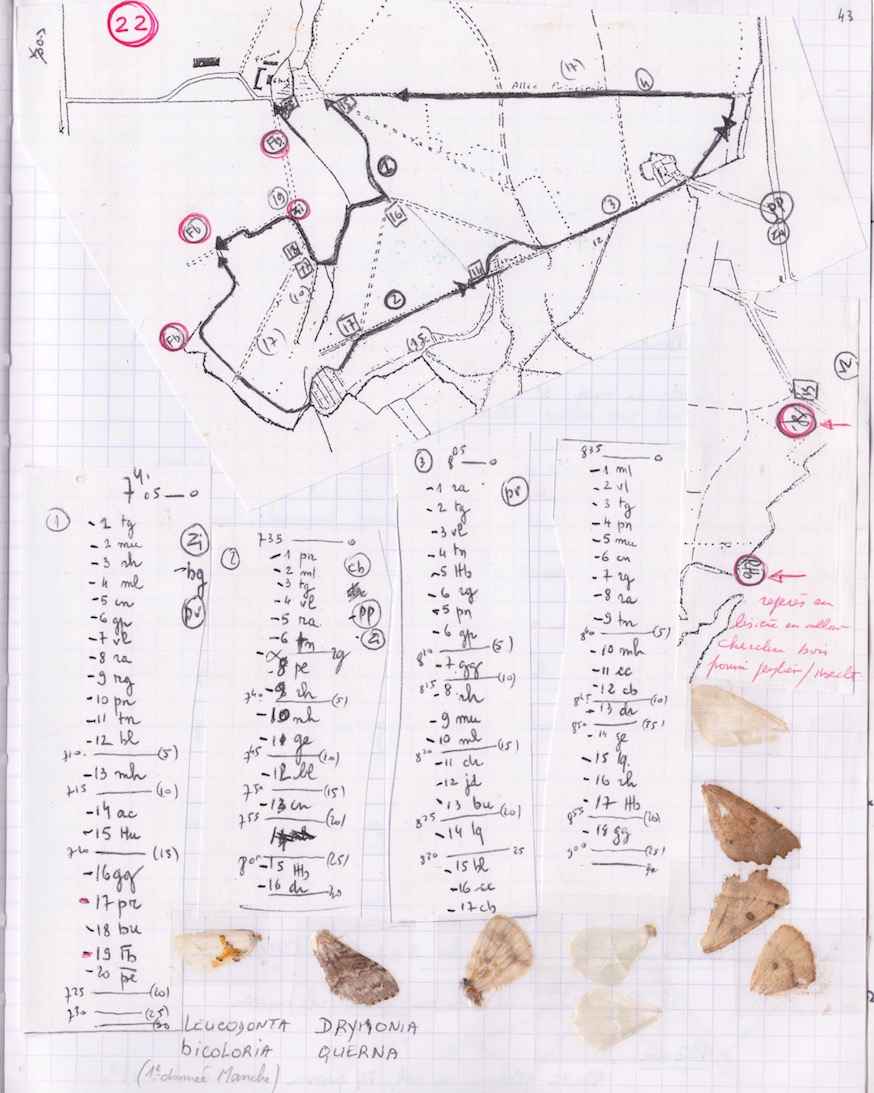 22
43
Allée Principale
(17)
4
15
Fb
1
Zi
19
16
3
12
PP
Fb
18
14
2
(10)
(17)
17
Fb
(15)
12
15
repérés en
lisière en allant
chercher bois
pourri
7h.05 — 0
1
-1 tg
-2 mu
-3 rh
-4 ml
-5 cn
-6 gp
-7 vl
-8 ra
-9 rg
-10 pn
-11 tn
-12 bl
710 — (5)
-13 mh
715 — (10)
-14 ac
-15 Hu
720 — (15)
-16 gg
-17 pr
-18 bu
-19 Fb
-20 pe
725 — (20)
730 — (25)
30
Zi
-bg
pv
2
735 — 0
-1 pn
-2 ml
-3 tg
-4 vl
-5 ra
-6 tn
-8 pe
-9 rh
740 — (5)
-10 mh
-11 ge
745 — (10)
-12 bl
750 — (15)
-13 cn
755 — (20)
800 — (25)
-15 Hb
-16 dr
30
cb
-PP
-Zi
3
805 — 0
-1 ra
-2 tg
-3 vl
-4 tn
-5 Hb
-6 rg
-5 pn
-6 gp
810 — (5)
-7 gg
815 — (10)
-8 rh
-9 mu
-10 ml
820 — (15)
-11 ch
-12 jd
-13 bu
825 — (20)
-14 lq
830 — 25
-15 bl
-16 cc
-17 cb
pv
835 — 0
-1 ml
-2 vl
-3 tg
-4 pn
-5 mu
-6 cn
-7 rg
-8 ra
-9 tn
840 — (5)
-10 mh
-11 cc
-12 cb
845 — (10)
-13 dr
850 — (15)
-14 ge
-15 lq
-16 rh
-17 Hb
855 — (20)
-18 gg
900 — (25)
30
LEUCODONTA
bICOLORIA
(1e donnée Manche)
DRYMONIA
QUERNA